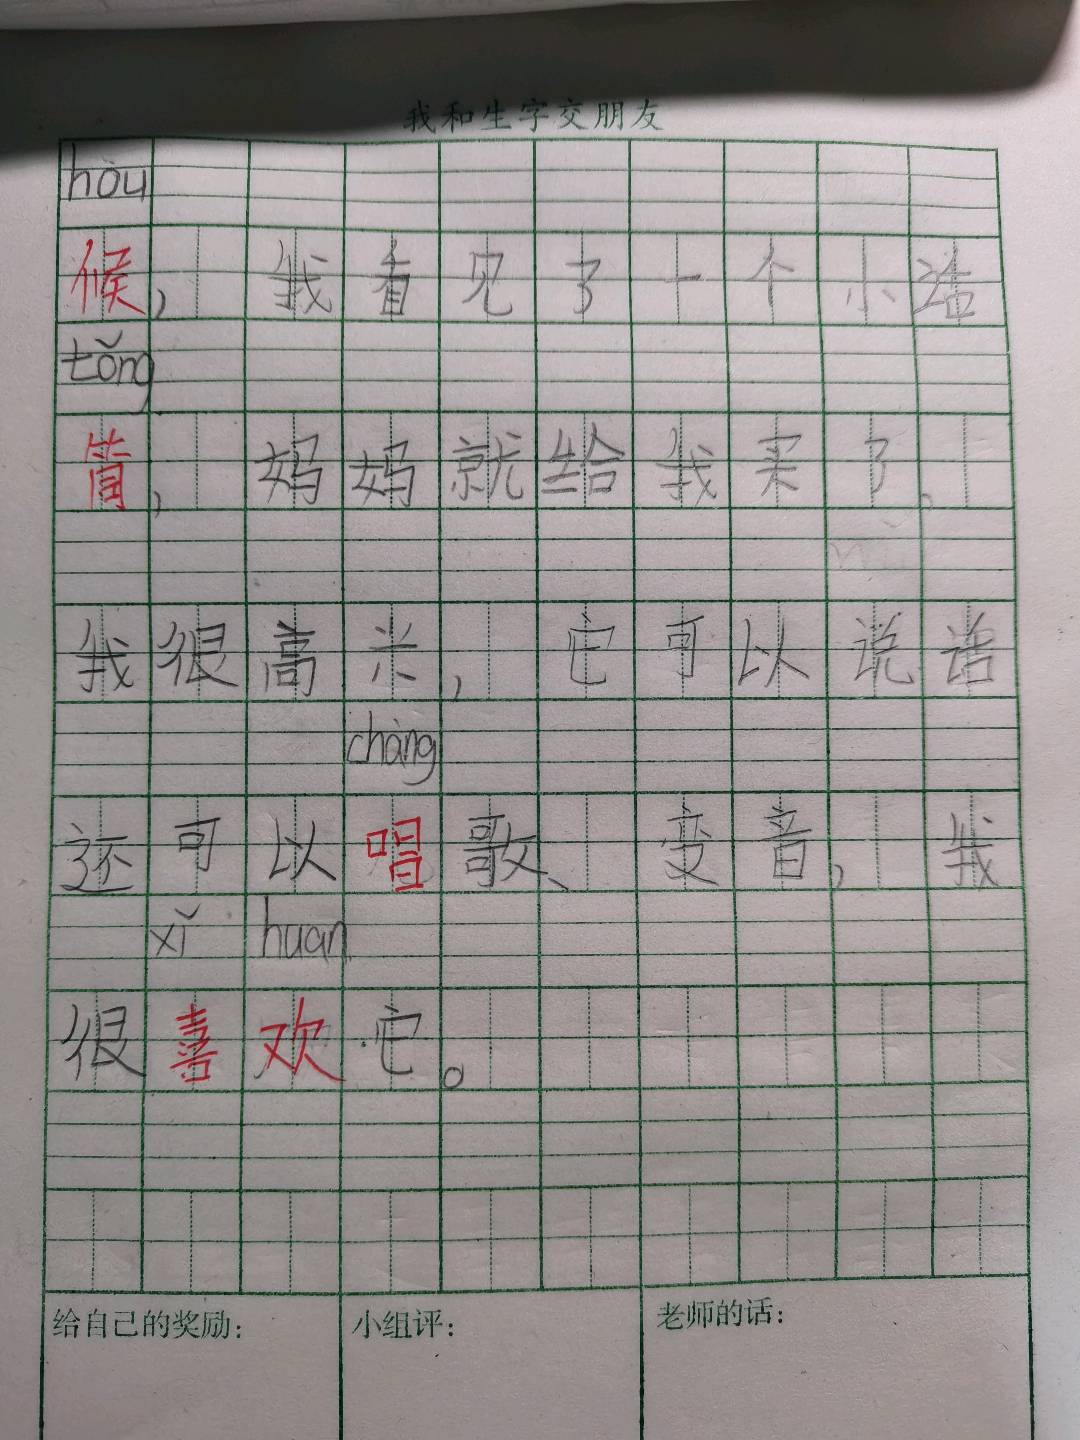 我和生字交朋友
hòu
候，我看见了一个小话
tǒng
筒，妈妈就给我买了，
我很高米，它可以说话
chàng
还可以唱歌、变音，我
xǐ huan
很喜欢它。
给自己的奖励： 小组评： 老师的话：